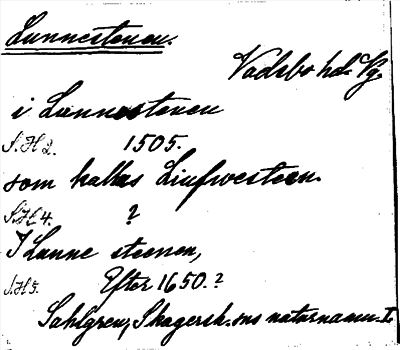 Lunnestenen.
Vadsbo hd. Vg.
i Lunnestenen
S.H 2. 1505.
som kallas Liufwesteen.
S.H 4. ?
I Lunne steenen,
S.H 5. Efter 1650.?
Sahlgren, Skagersh. sns naturnamn I.